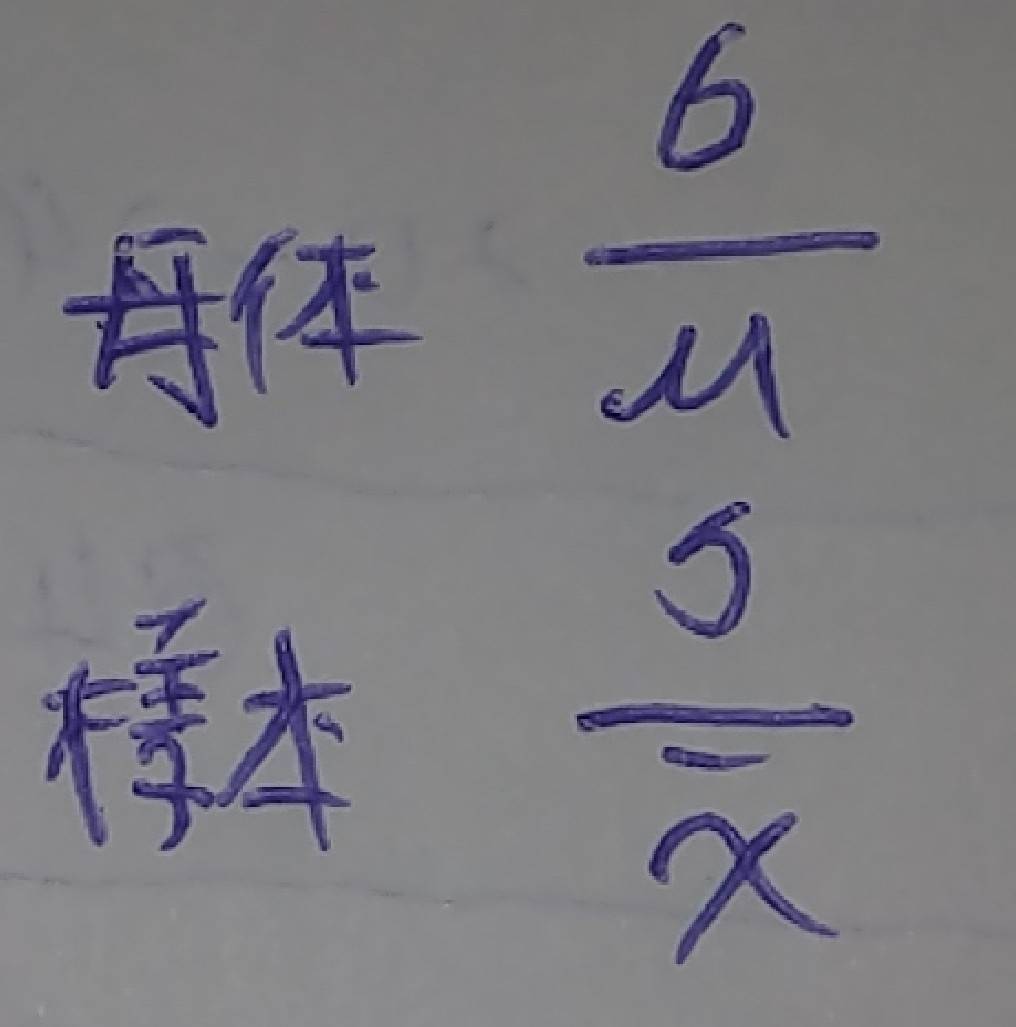 母体 σ/μ
樣本 S/x̄